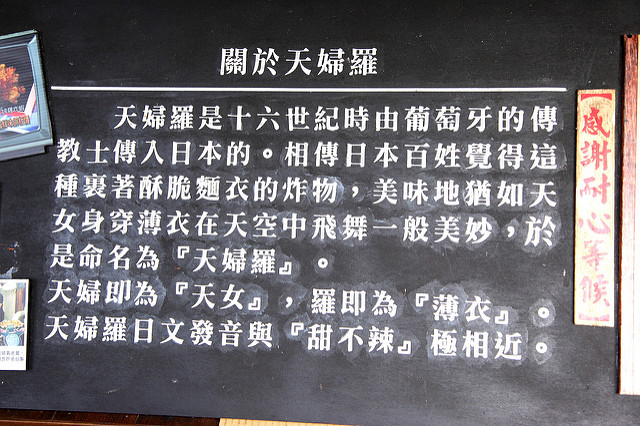 關於天婦羅
天婦羅是十六世紀時由葡萄牙的傳
教士傳入日本的。相傳日本百姓覺得這
種裹著酥脆麵衣的炸物，美味地猶如天
女身穿薄衣在天空中飛舞一般美妙，於
是命名為『天婦羅』。
天婦即為『天女』，羅即為『薄衣』。
天婦羅日文發音與『甜不辣』極相近。
感謝耐心等候